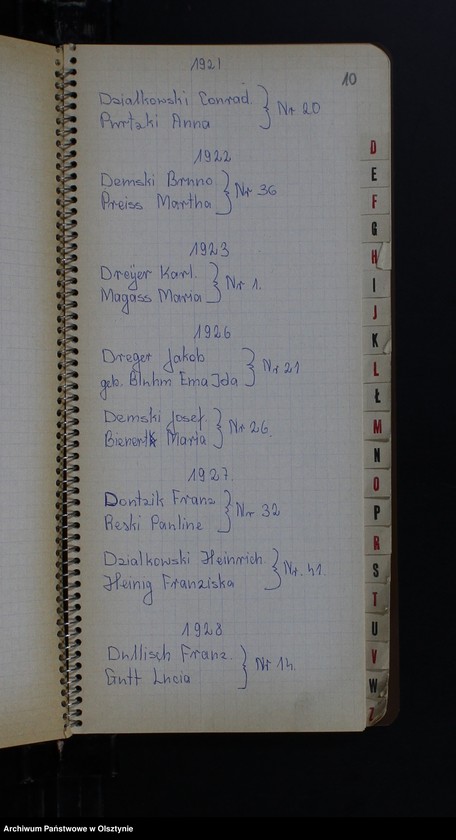 1921
10
Dzialkowski Conrad.
Purtzki Anna
Nr 20
1922
Demski Bruno
Preiss Martha
Nr 36
1923
Dreÿer Karl.
Magass Maria
Nr 1.
1926
Dreger Jakob
geb. Bluhm Ema Ida
Nr 21
Demski Josef
Bienert Marta
Nr 26.
1927.
Dontzik Franz
Reski Pauline
Nr 32
Dzialkowski Heinrich
Heinig Franziska
Nr. 41.
1928
Dullisch Franz.
Gutt Lucia
Nr 14.
D
E
F
G
H
I
J
K
L
Ł
M
N
O
P
R
S
T
U
V
W
Z
Archiwum Państwowe w Olsztynie